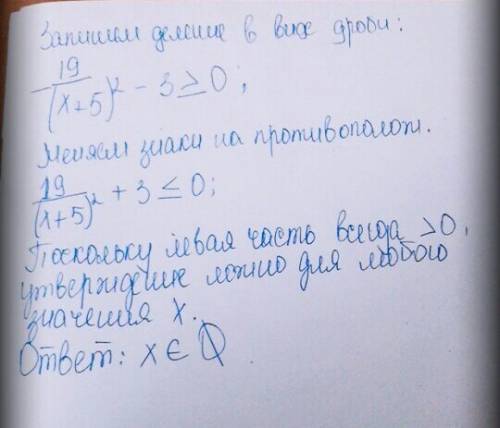 Запишем деление в виде дроби:
-19/(x+5)² - 3 ≥ 0;
Меняем знаки на противополож.
19/(x+5)² + 3 ≤ 0;
Поскольку левая часть всегда >0,
утверждение ложно для любого
значения x.
Ответ: x ∈ ∅